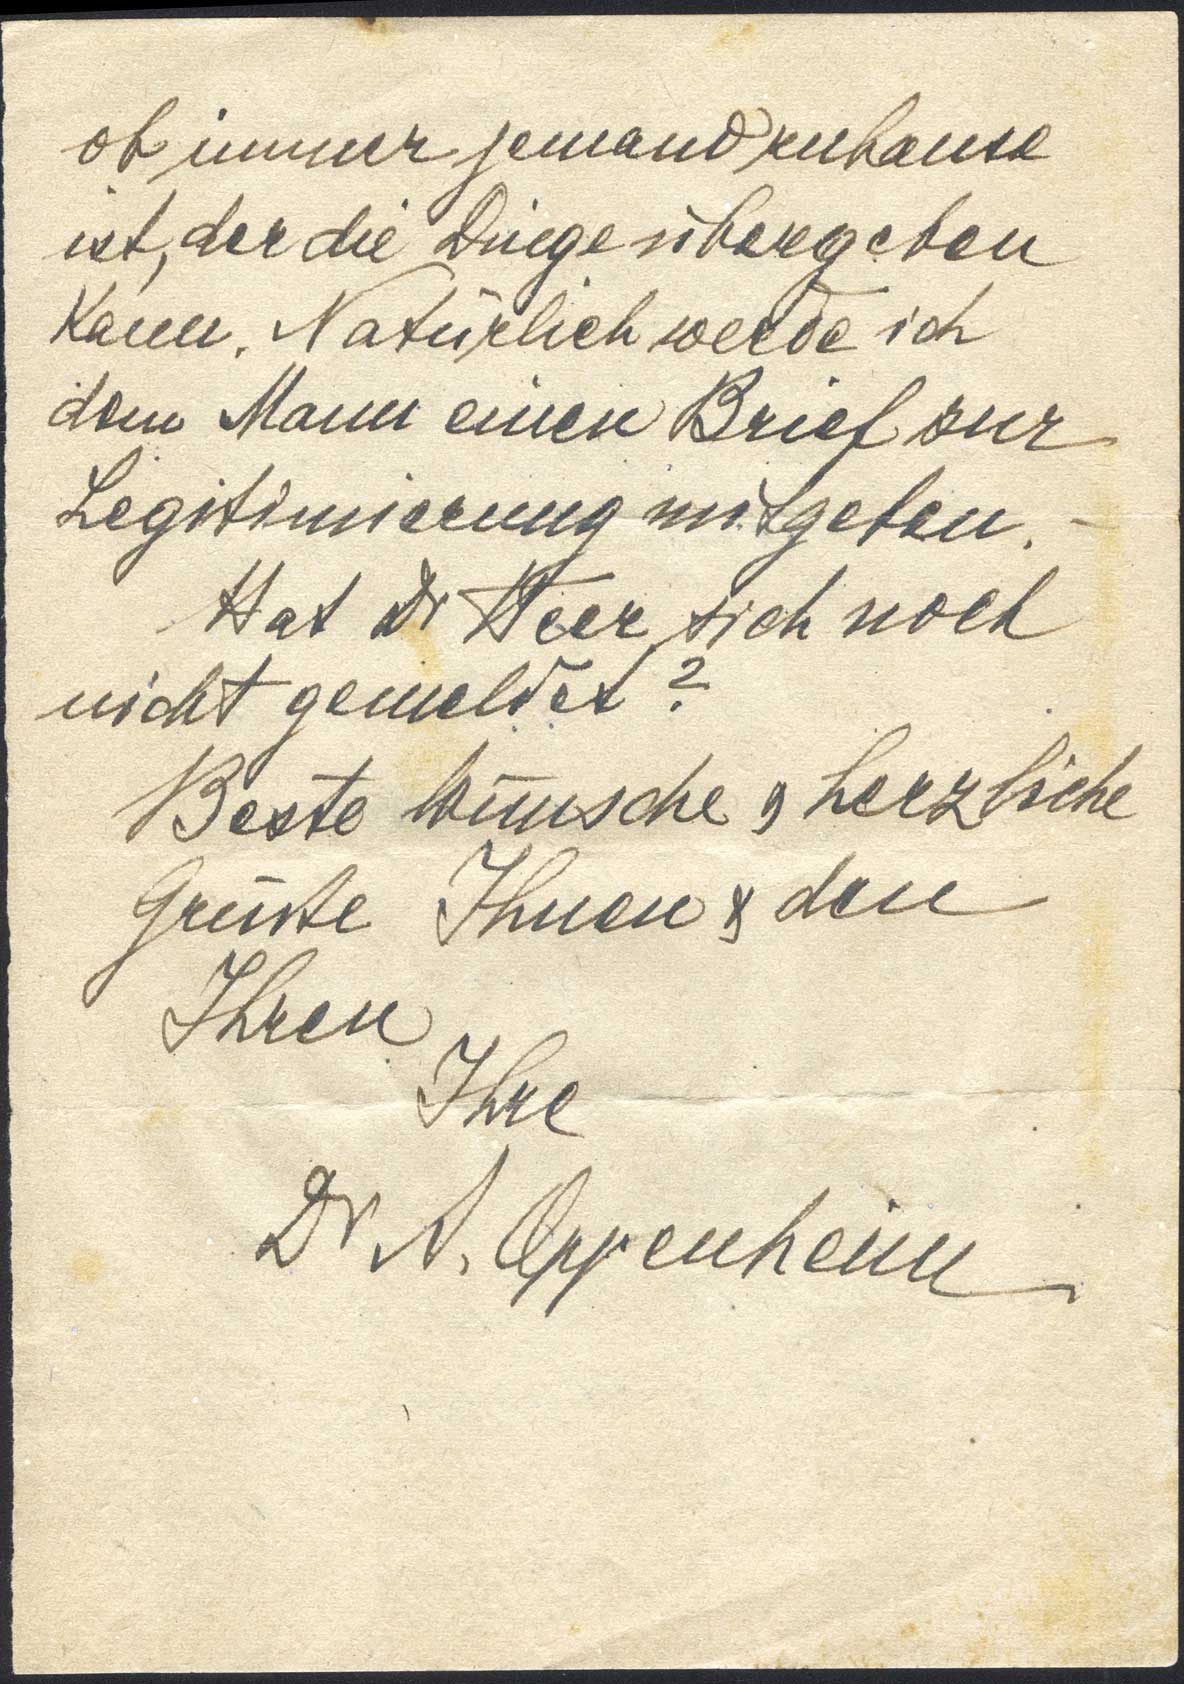 ob immer jemand zuhause
ist, der die Dinge übergeben
kann. Natürlich werde ich
dem Mann einen Brief zur
Legitimierung mitgeben. -
Hat Dr Heer sich noch
nicht gemeldet?
Beste Wünsche & herzliche
Grüsse Ihnen & den
Ihren
Ihre
Dr. A. Oppenheim